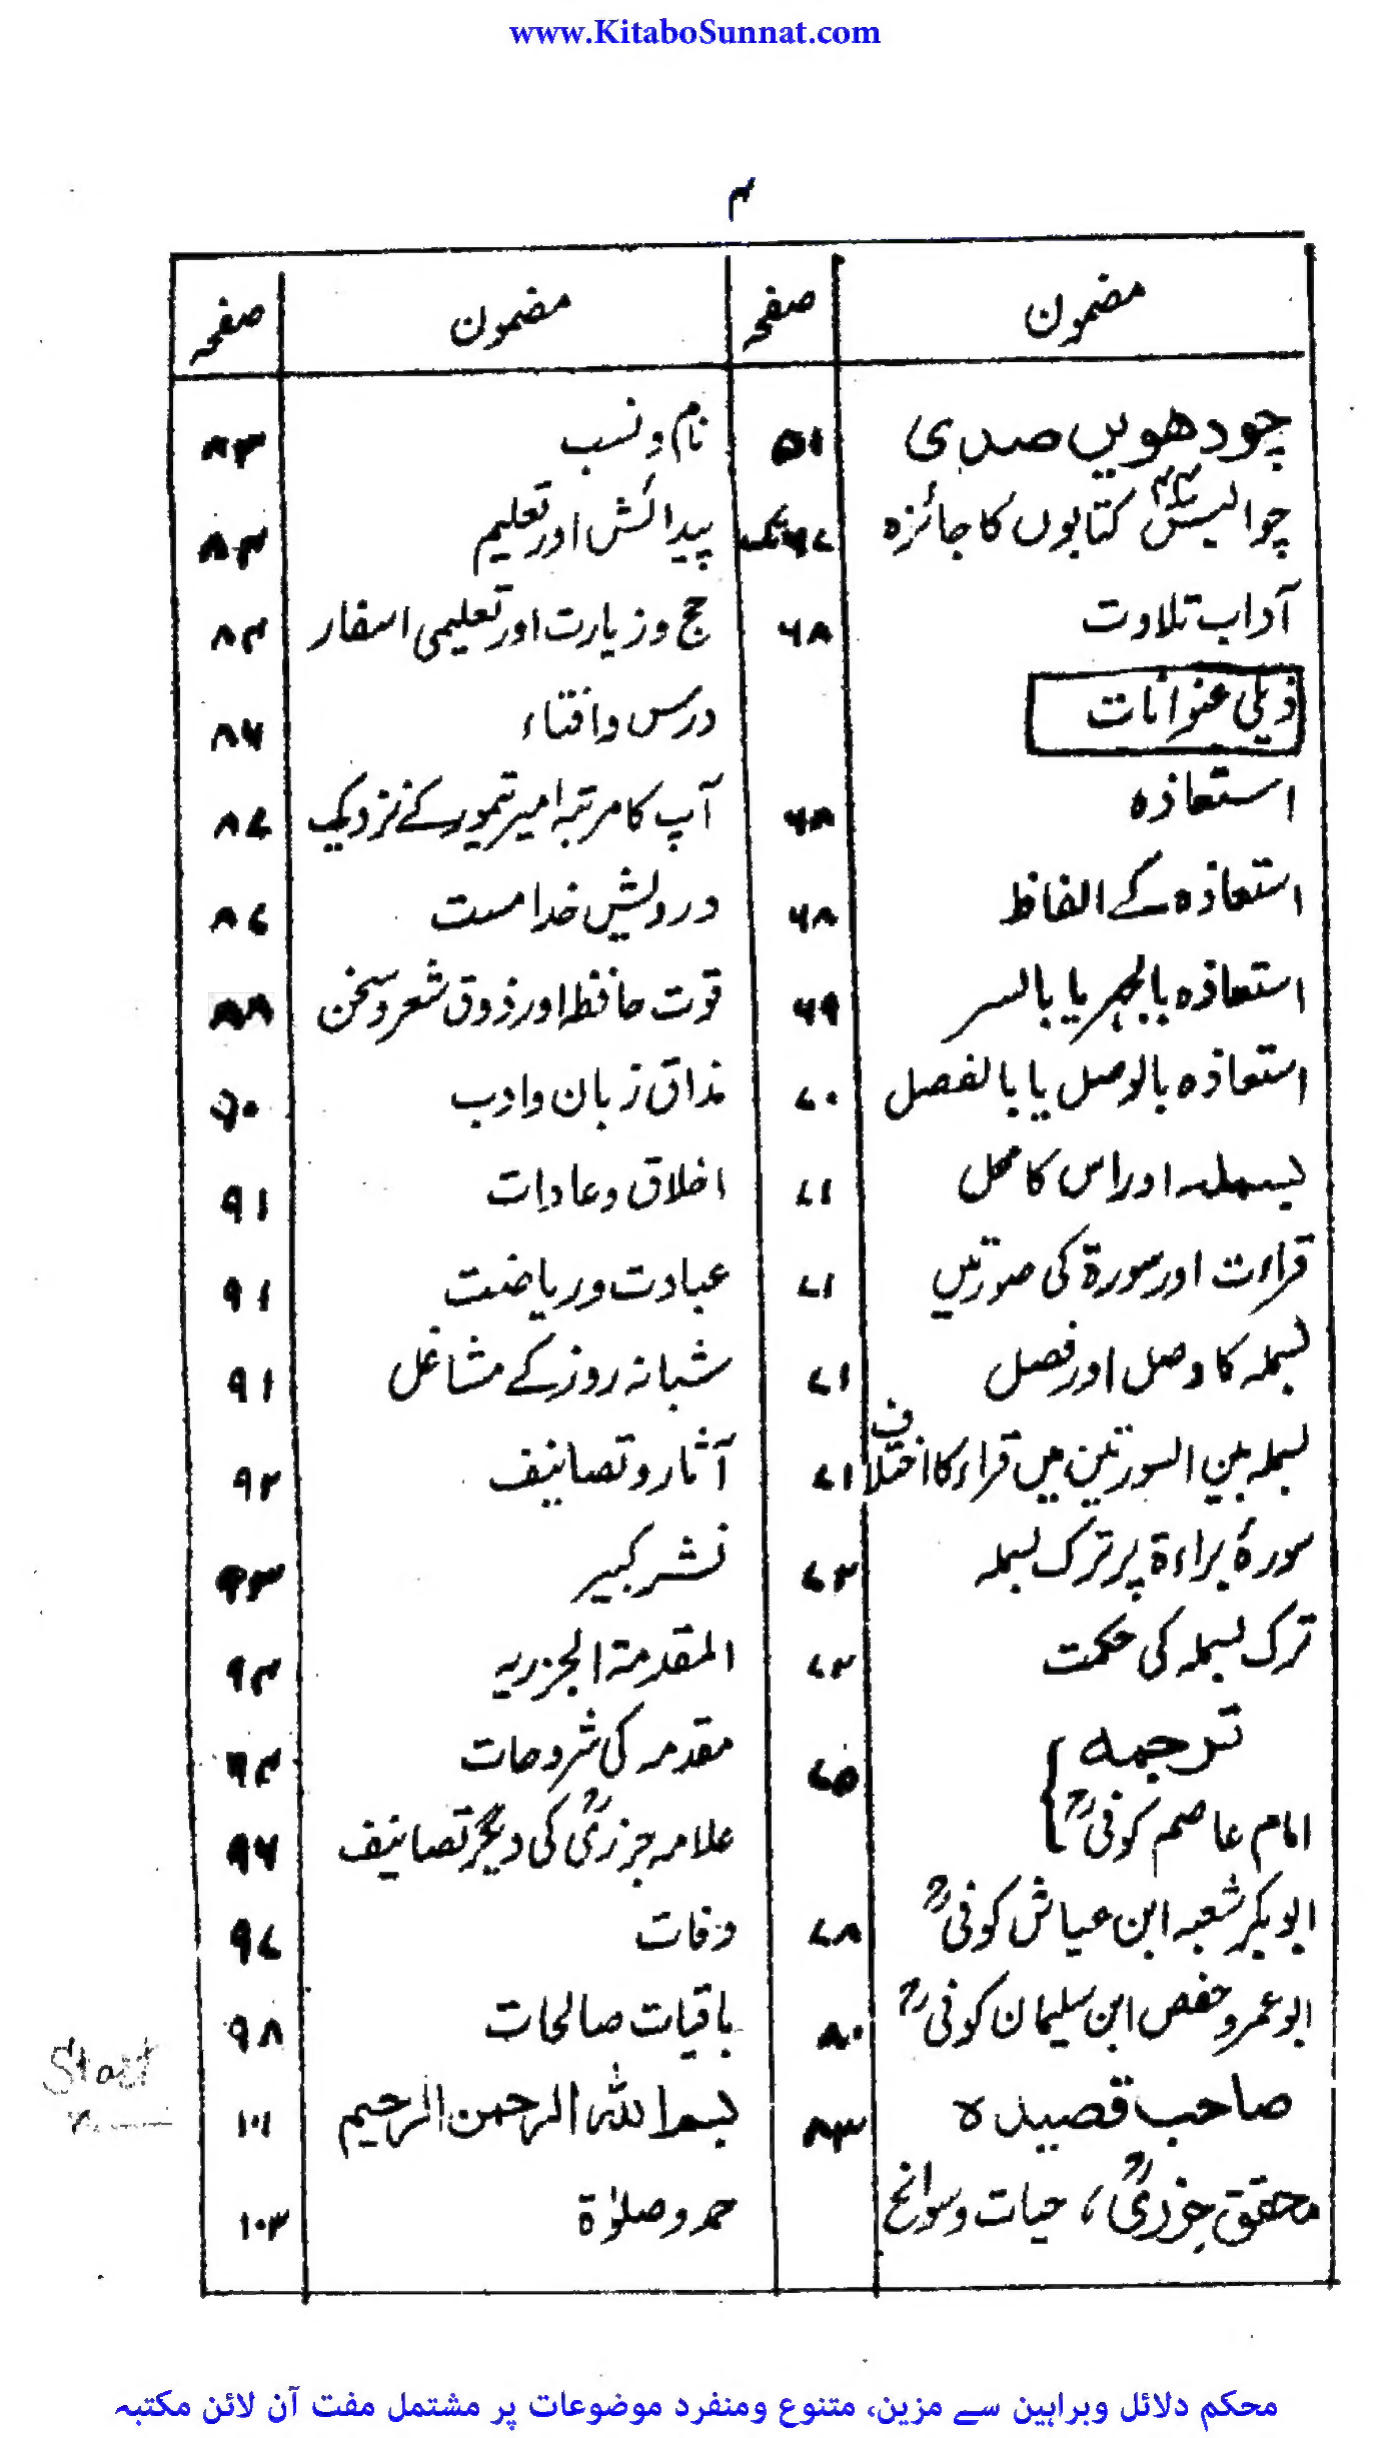 www.KitaboSunnat.com
۴
مضمون صفحہ
چودھویں صدی ۵۱
چوالیس ۴۴ کتابوں کا جائزہ ۶۷ تک
آداب تلاوت ۶۸
ذیلی عنوانات
استعاذہ ۶۸
استعاذہ کے الفاظ ۶۸
استعاذہ بالجہر یا بالسر ۶۹
استعاذہ بالوصل یا بالفصل ۷۰
بسملہ اور اس کا محل ۷۱
قراءت اور سورۃ کی صورتیں ۷۱
بسملہ کا وصل اور فصل ۷۱
بسملہ بین السورتین میں قراء کا اختلاف ۷۱
سورۂ براءۃ پر ترک بسملہ ۷۲
ترک بسملہ کی حکمت ۷۲
ترجمہ
امام عاصم کوفیؒ ۷۵
ابوبکر شعبہ ابن عیاش کوفیؒ ۷۸
ابوعمرو حفص ابن سلیمان کوفیؒ ۸۰
صاحب قصیدہ ۸۳
محقق جزریؒ، حیات و سوانح
مضمون صفحہ
نام و نسب ۸۳
پیدائش اور تعلیم ۸۴
حج و زیارت اور تعلیمی اسفار ۸۴
درس و افتاء ۸۶
آپ کا مرتبہ امیر تیمور کے نزدیک ۸۷
درویش خدا مست ۸۷
قوت حافظہ اور ذوق شعر و سخن ۸۸
مذاق زبان و ادب ۹۰
اخلاق و عادات ۹۱
عبادت و ریاضت ۹۱
شبانہ روز کے مشاغل ۹۱
آثار و تصانیف ۹۲
نشر کبیر ۹۳
المقدمۃ الجزریہ ۹۴
مقدمہ کی شروحات ۹۴
علامہ جزریؒ کی دیگر تصانیف ۹۶
وفات ۹۷
باقیات صالحات ۹۸
بسم اللہ الرحمن الرحیم ۱۰۱
حمد و صلوٰۃ ۱۰۲
Start
محکم دلائل وبراہین سے مزین، متنوع ومنفرد موضوعات پر مشتمل مفت آن لائن مکتبہ